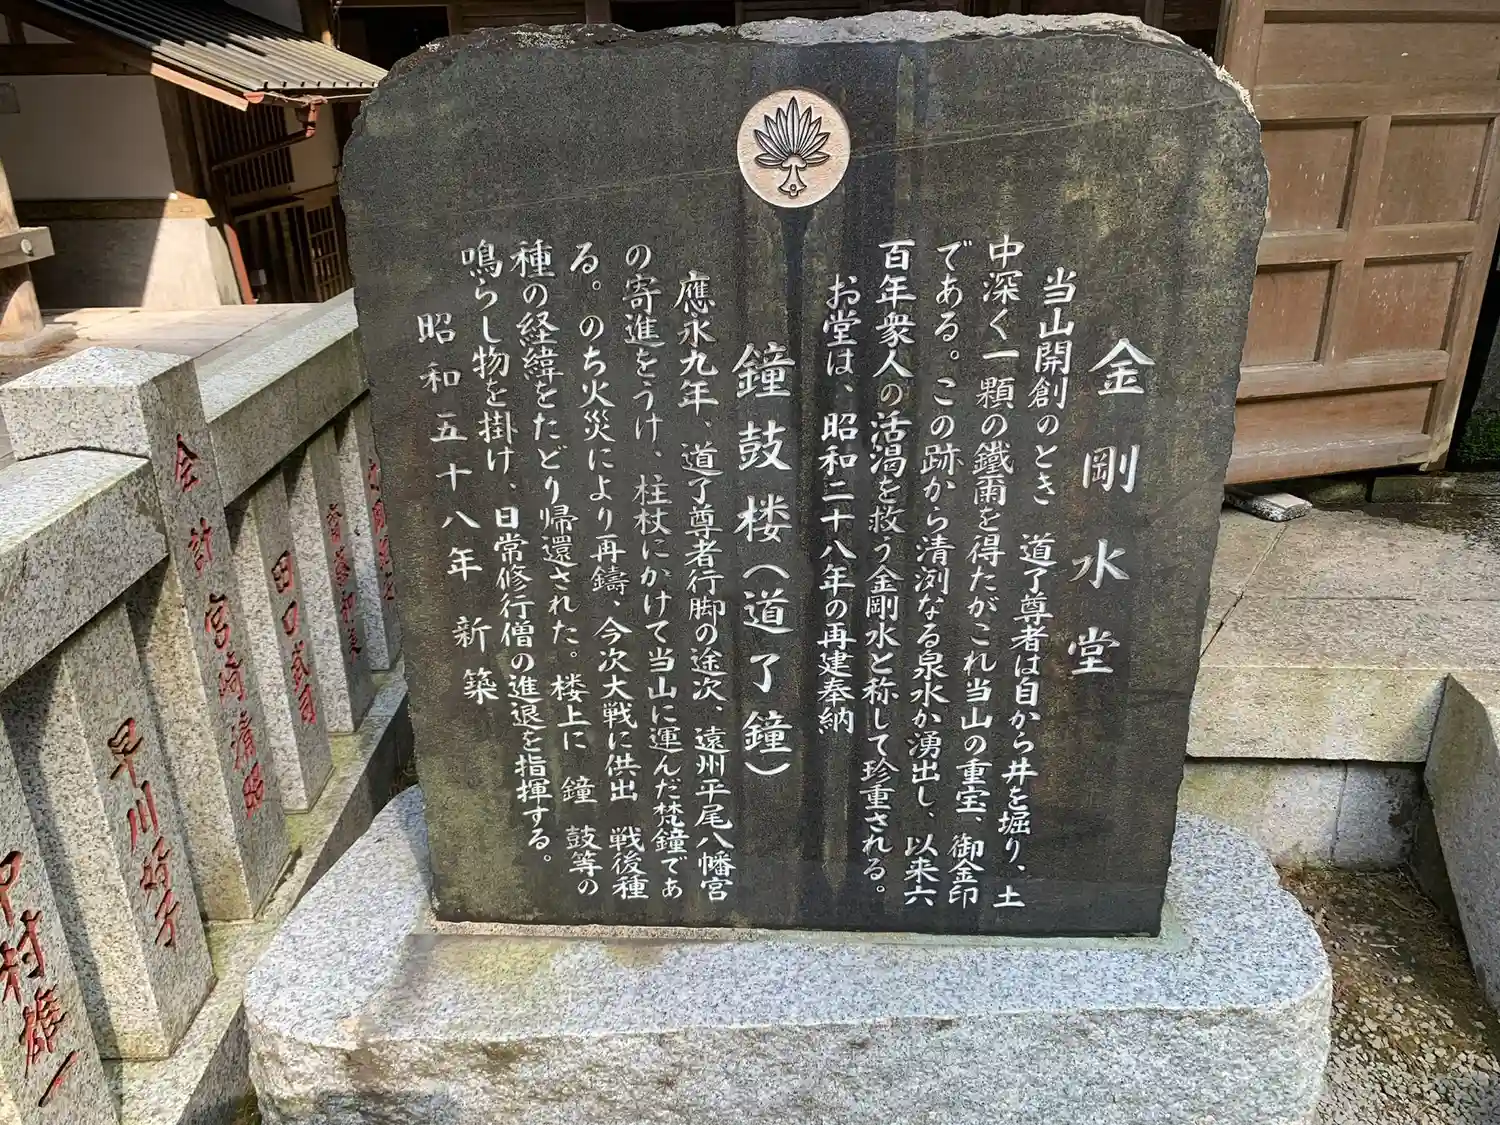 金剛水堂
当山開創のとき 道了尊者は自から井を堀り、土
中深く一顆の鐵爾を得たがこれ当山の重宝、御金印
である。この跡から清洌なる泉水か湧出し、以来六
百年衆人の活渇を救う金剛水と称して珍重される。
お堂は、昭和二十八年の再建奉納
鐘鼓楼（道了鐘）
應永九年、道了尊者行脚の途次、遠州平尾八幡宮
の寄進をうけ、柱杖にかけて当山に運んだ梵鐘であ
る。のち火災により再鑄、今次大戦に供出 戦後種
種の経緯をたどり帰還された。楼上に 鐘 鼓等の
鳴らし物を掛け、日常修行僧の進退を指揮する。
昭和五十八年 新築
田口武司
会計 宮崎清昭
早川
中村雄一